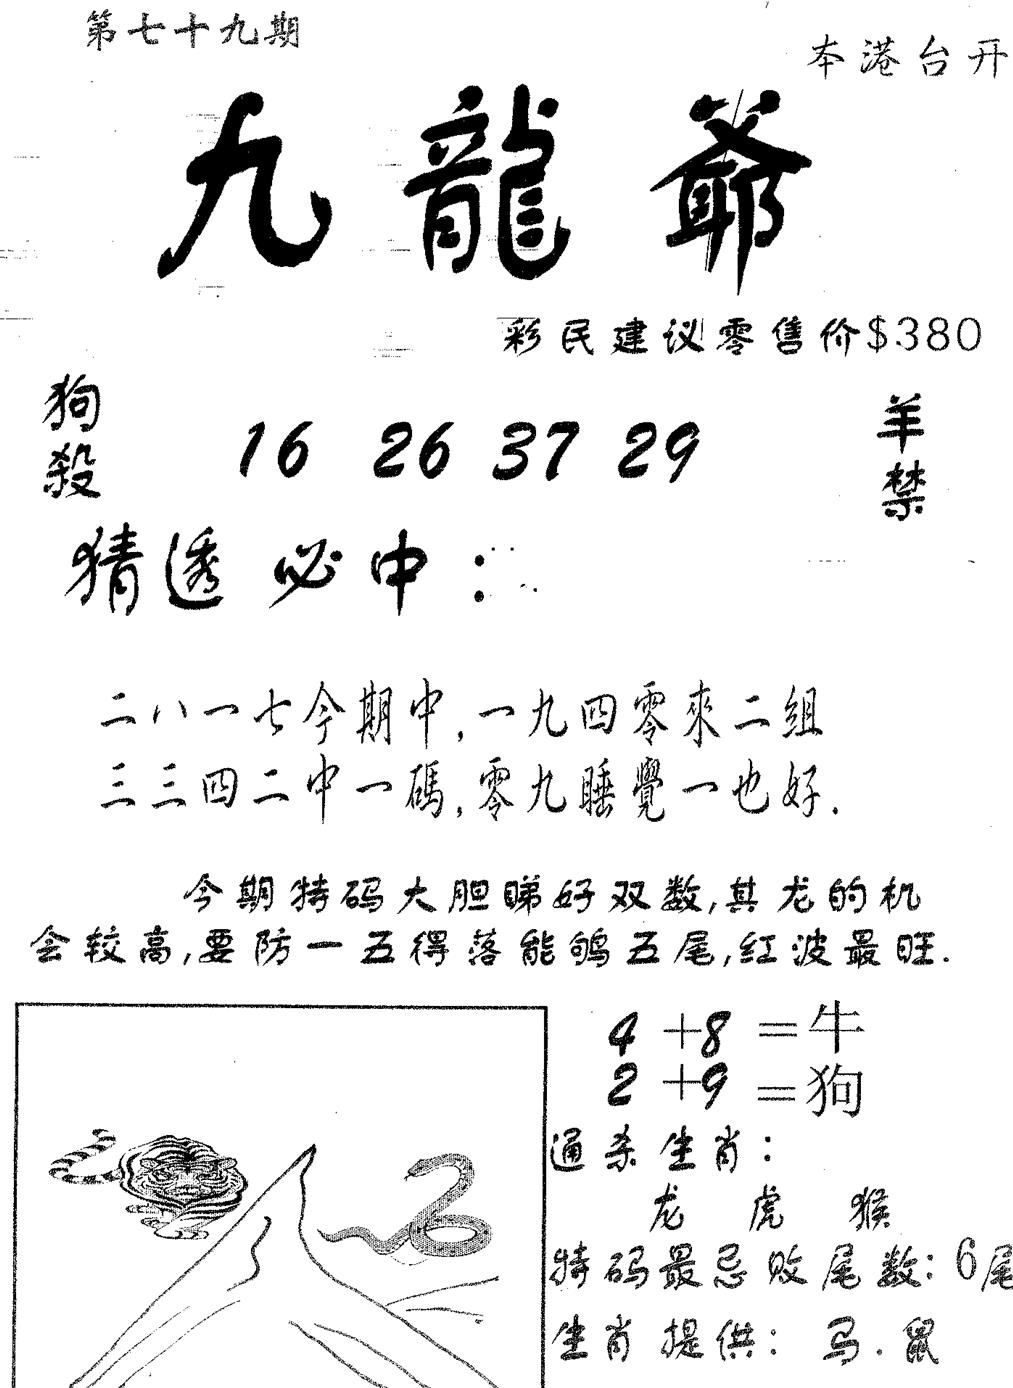 第七十九期
本港台开
九龍爺
彩民建议零售价$380
狗殺
16 26 37 29
羊禁
猜透必中：
二八一七今期中,一九四零來二组
三三四二中一碼,零九睡覺一也好.
今期特码大胆睇好双数,其龙的机
会较高,要防一五得落能够五尾,红波最旺.
4+8=牛
2+9=狗
通杀生肖：
龙 虎 猴
特码最忌败尾数：6尾
生肖提供：马.鼠